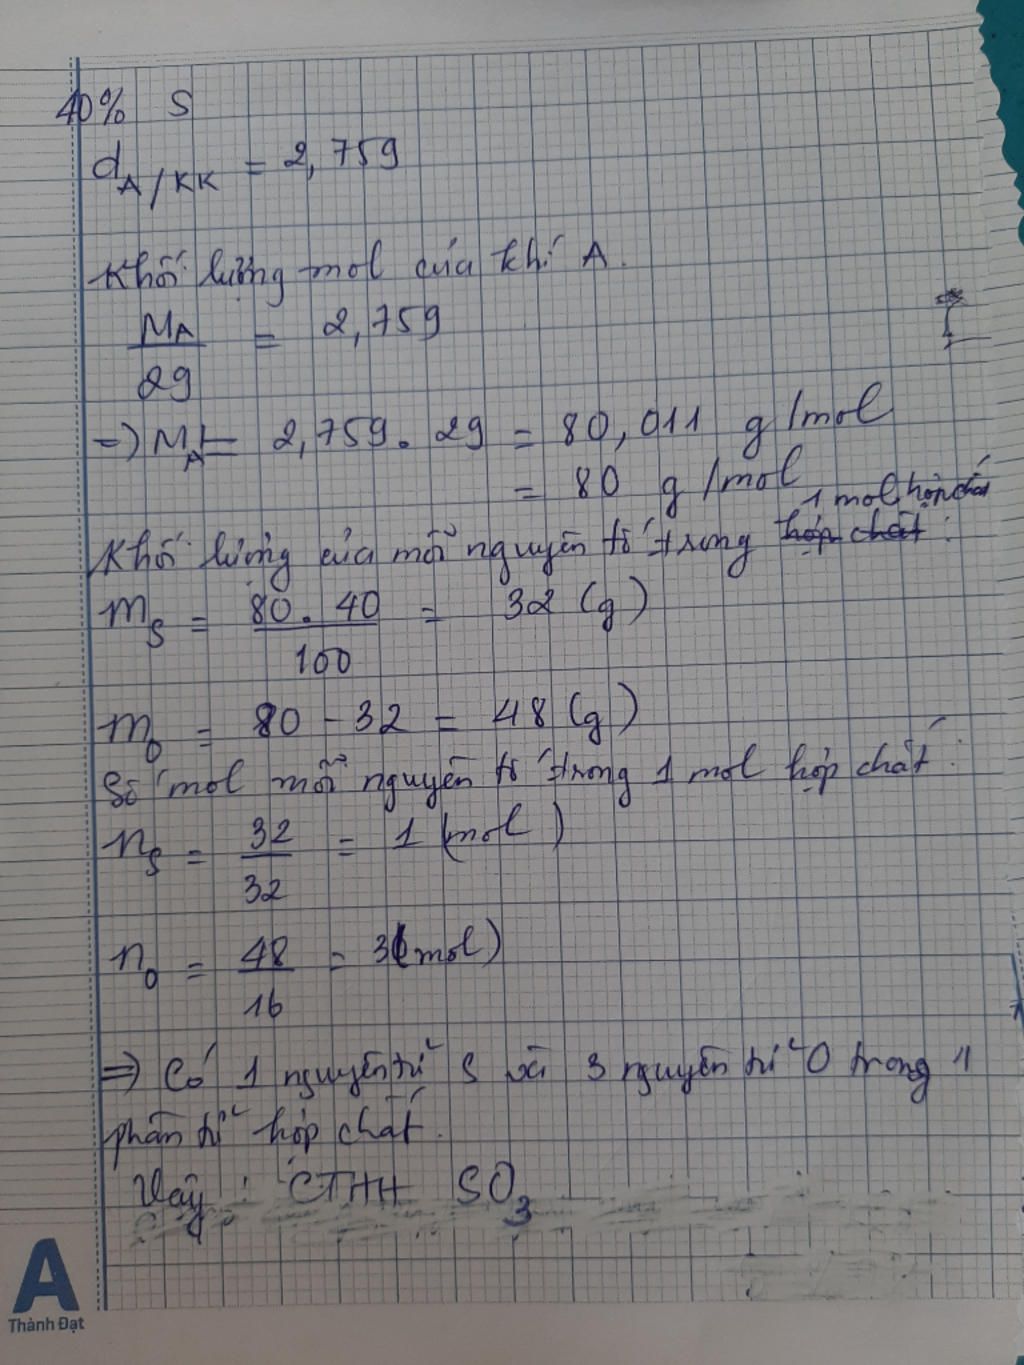 40% S
d A/KK = 2,759
Khối lượng mol của khí A.
MA = 2,759
29
=> MA = 2,759. 29 = 80,011 g/mol
= 80 g/mol
1 mol hợp chất
Khối lượng của mỗi nguyên tố trong hợp chất :
mS = 80. 40 = 32 (g)
100
mO = 80 - 32 = 48 (g)
Số mol mỗi nguyên tố trong 1 mol hợp chất :
nS = 32 = 1 (mol)
32
nO = 48 = 3(mol)
16
=> Có 1 nguyên tử S và 3 nguyên tử O trong 1
phân tử hợp chất.
Vậy : CTHH SO3
A
Thành Đạt